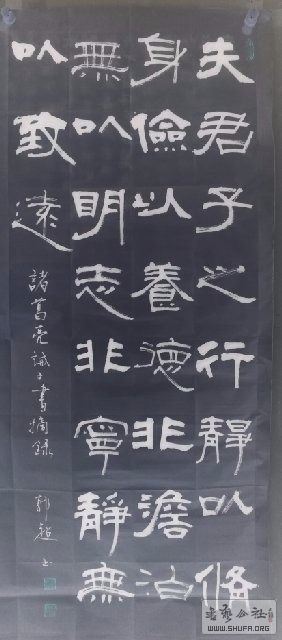 夫君子之行靜以脩
身儉以養德非澹泊
無以明志非寧靜無
以致遠
諸葛亮誡子書摘錄
書藝公社
WWW.SHUFA.ORG